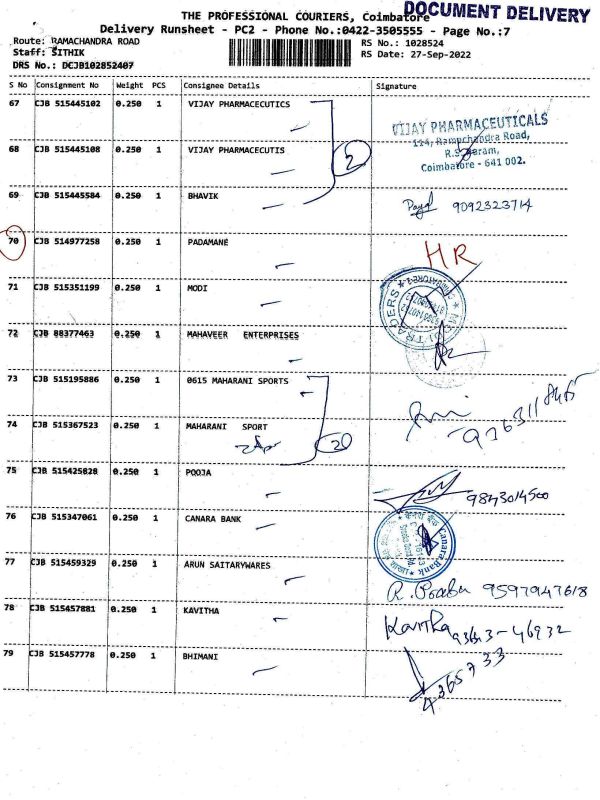 THE PROFESSIONAL COURIERS, Coimbatore
DOCUMENT DELIVERY
Delivery Runsheet - PC2 - Phone No.:0422-3505555 - Page No.:7
Route: RAMACHANDRA ROAD
RS No.: 1028524
Staff: SITHIK
RS Date: 27-Sep-2022
DRS No.: DCJB102852407
S No Consignment No Weight PCS Consignee Details Signature
67 CJB 515445102 0.250 1 VIJAY PHARMACECUTICS
VIJAY PHARMACEUTICALS
114, Ramachandra Road,
R.S.Puram,
Coimbatore - 641 002.
68 CJB 515445108 0.250 1 VIJAY PHARMACECUTIS
2
69 CJB 515445584 0.250 1 BHAVIK
9092323714
70 CJB 514977258 0.250 1 PADAMANE
HR
71 CJB 515351199 0.250 1 MODI
72 CJB 88377463 0.250 1 MAHAVEER ENTERPRISES
73 CJB 515195886 0.250 1 0615 MAHARANI SPORTS
74 CJB 515367523 0.250 1 MAHARANI SPORT
75 CJB 515425828 0.250 1 POOJA
9843014500
76 CJB 515347061 0.250 1 CANARA BANK
Canara Bank
77 CJB 515459329 0.250 1 ARUN SAITARYWARES
9597947618
78 CJB 515457881 0.250 1 KAVITHA
Kavitha
79 CJB 515457778 0.250 1 BHIMANI